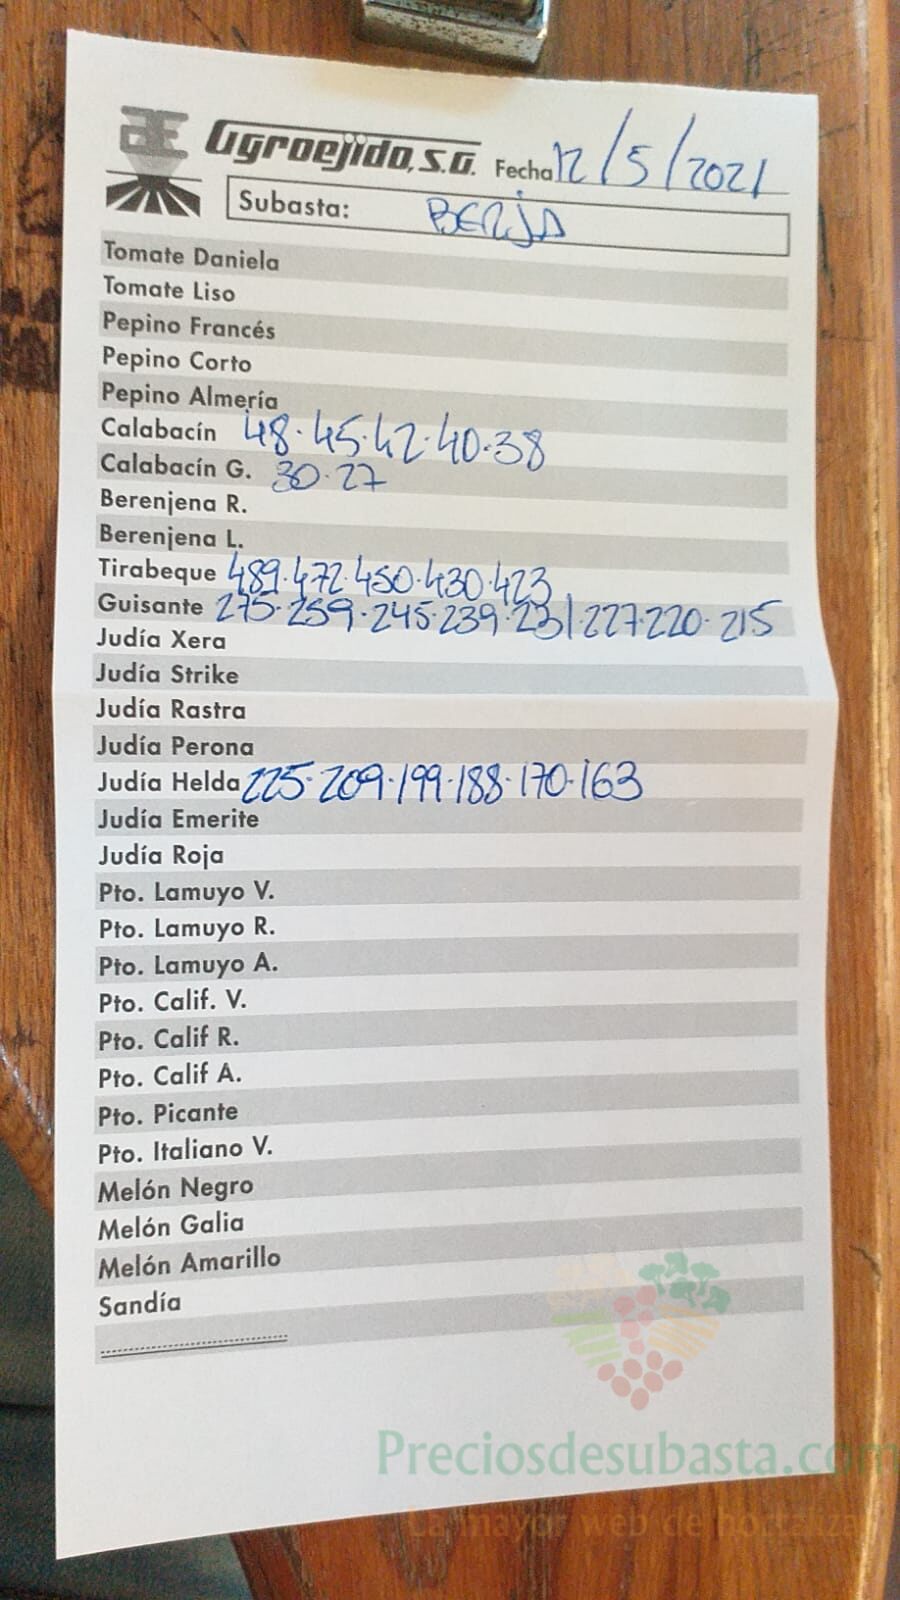 AE Agroejido, S.G. Fecha 12/5/2021
Subasta: BERJA
Tomate Daniela
Tomate Liso
Pepino Francés
Pepino Corto
Pepino Almería
Calabacín 48.45.42.40.38
Calabacín G. 30.27
Berenjena R.
Berenjena L.
Tirabeque 489.472.450.430.423
Guisante 275.259.245.239.231 227.220.215
Judía Xera
Judía Strike
Judía Rastra
Judía Perona
Judía Helda 225.209.199.188.170.163
Judía Emerite
Judía Roja
Pto. Lamuyo V.
Pto. Lamuyo R.
Pto. Lamuyo A.
Pto. Calif. V.
Pto. Calif R.
Pto. Calif A.
Pto. Picante
Pto. Italiano V.
Melón Negro
Melón Galia
Melón Amarillo
Sandía
Preciosdesubasta.com
La mayor web de hortaliza